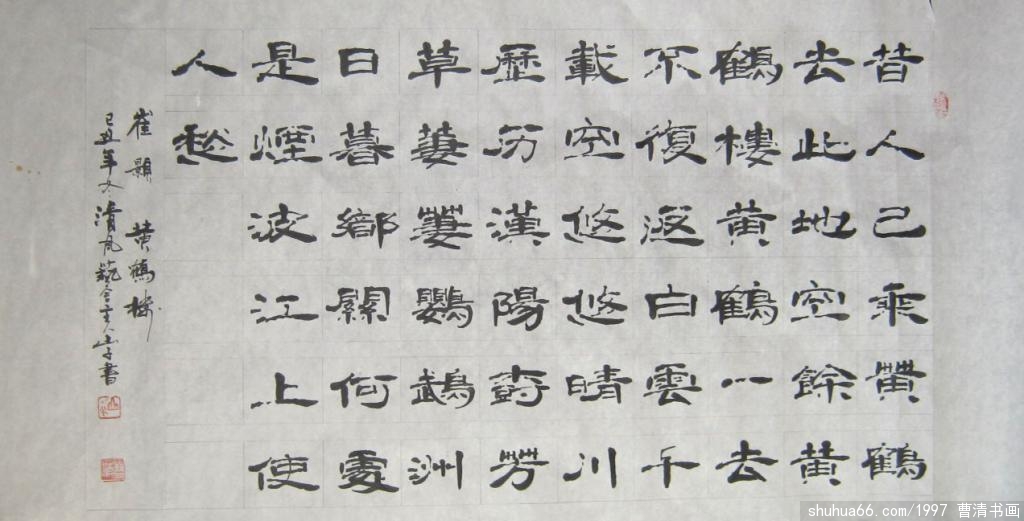 昔人已乘黄鶴
去此地空餘黄
鶴樓黄鶴一去
不復返白雲千
載空悠悠晴川
歷历漢陽樹芳
草萋萋鸚鵡洲
日暮鄉關何處
是煙波江上使
人愁
崔顥 黄鶴樓
己丑年冬清風書
shuhua66.com/1997 曹清书画